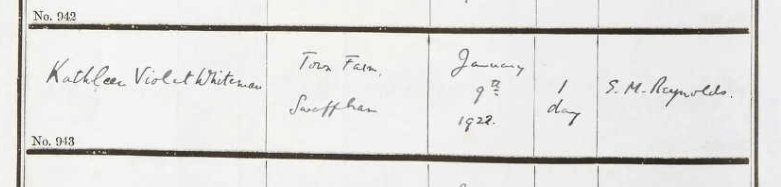 No. 942
Kathleen Violet Whiteman
Town Farm,
Swaffham
January
9th
1922.
1
day
S. M. Reynolds.
No. 943